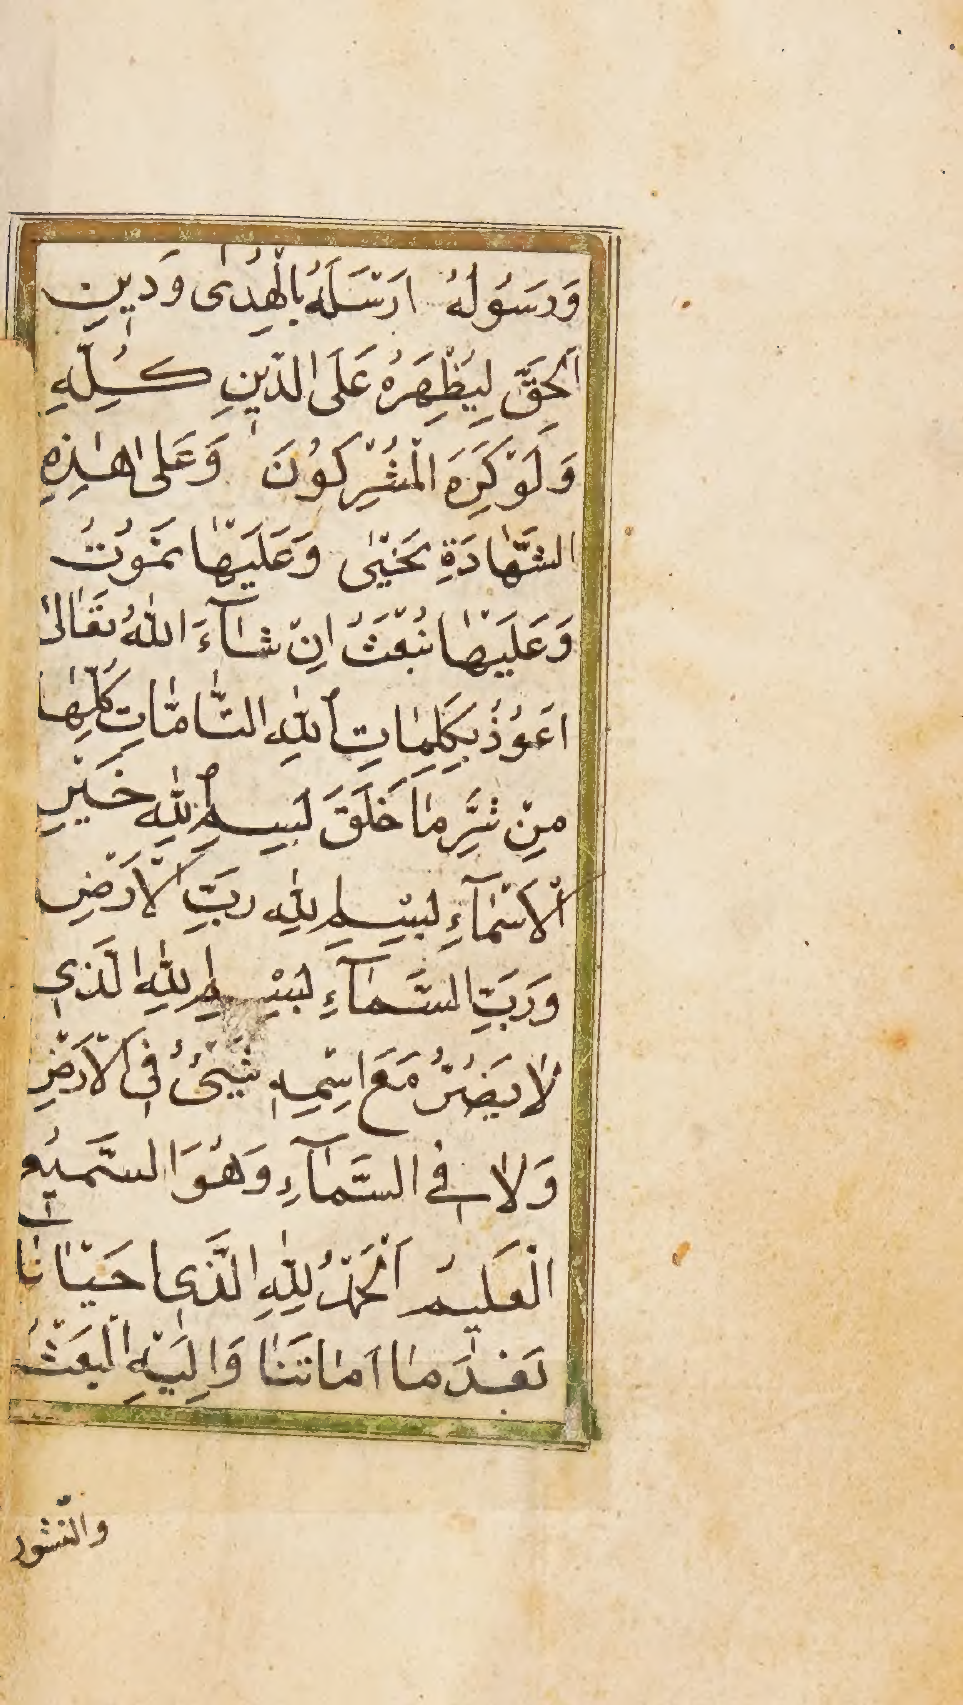 وَرَسُولُهُ اَرْسَلَهُ بِالْهُدٰى وَدِينِ
الْحَقِّ لِيُظْهِرَهُ عَلَى الدِّينِ كُلِّهِ
وَلَوْ كَرِهَ الْمُشْرِكُونَ وَعَلٰى هٰذِهِ
الشَّهَادَةِ نَحْيٰى وَعَلَيْهَا نَمُوتُ
وَعَلَيْهَا نُبْعَثُ اِنْ شَآءَ اللّٰهُ تَعَالٰى
اَعُوذُ بِكَلِمَاتِ اللّٰهِ التَّامَّاتِ كُلِّهَا
مِنْ شَرِّ مَا خَلَقَ بِسْمِ اللّٰهِ خَيْرِ
الْاَسْمَآءِ بِسْمِ اللّٰهِ رَبِّ الْاَرْضِ
وَرَبِّ السَّمَآءِ بِسْمِ اللّٰهِ الَّذِي
لَا يَضُرُّ مَعَ اسْمِهِ شَيْئٌ فِي الْاَرْضِ
وَلَا فِي السَّمَآءِ وَهُوَ السَّمِيعُ
الْعَلِيمُ اَلْحَمْدُ لِلّٰهِ الَّذِي اَحْيَانَا
بَعْدَ مَا اَمَاتَنَا وَاِلَيْهِ الْبَعْثُ
والنّشور